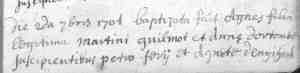 die 2da 7bris 1701 baptizata fuit Agnes filia
legitima Martini quilmot et Annæ
suscipientibus petro et Agnete